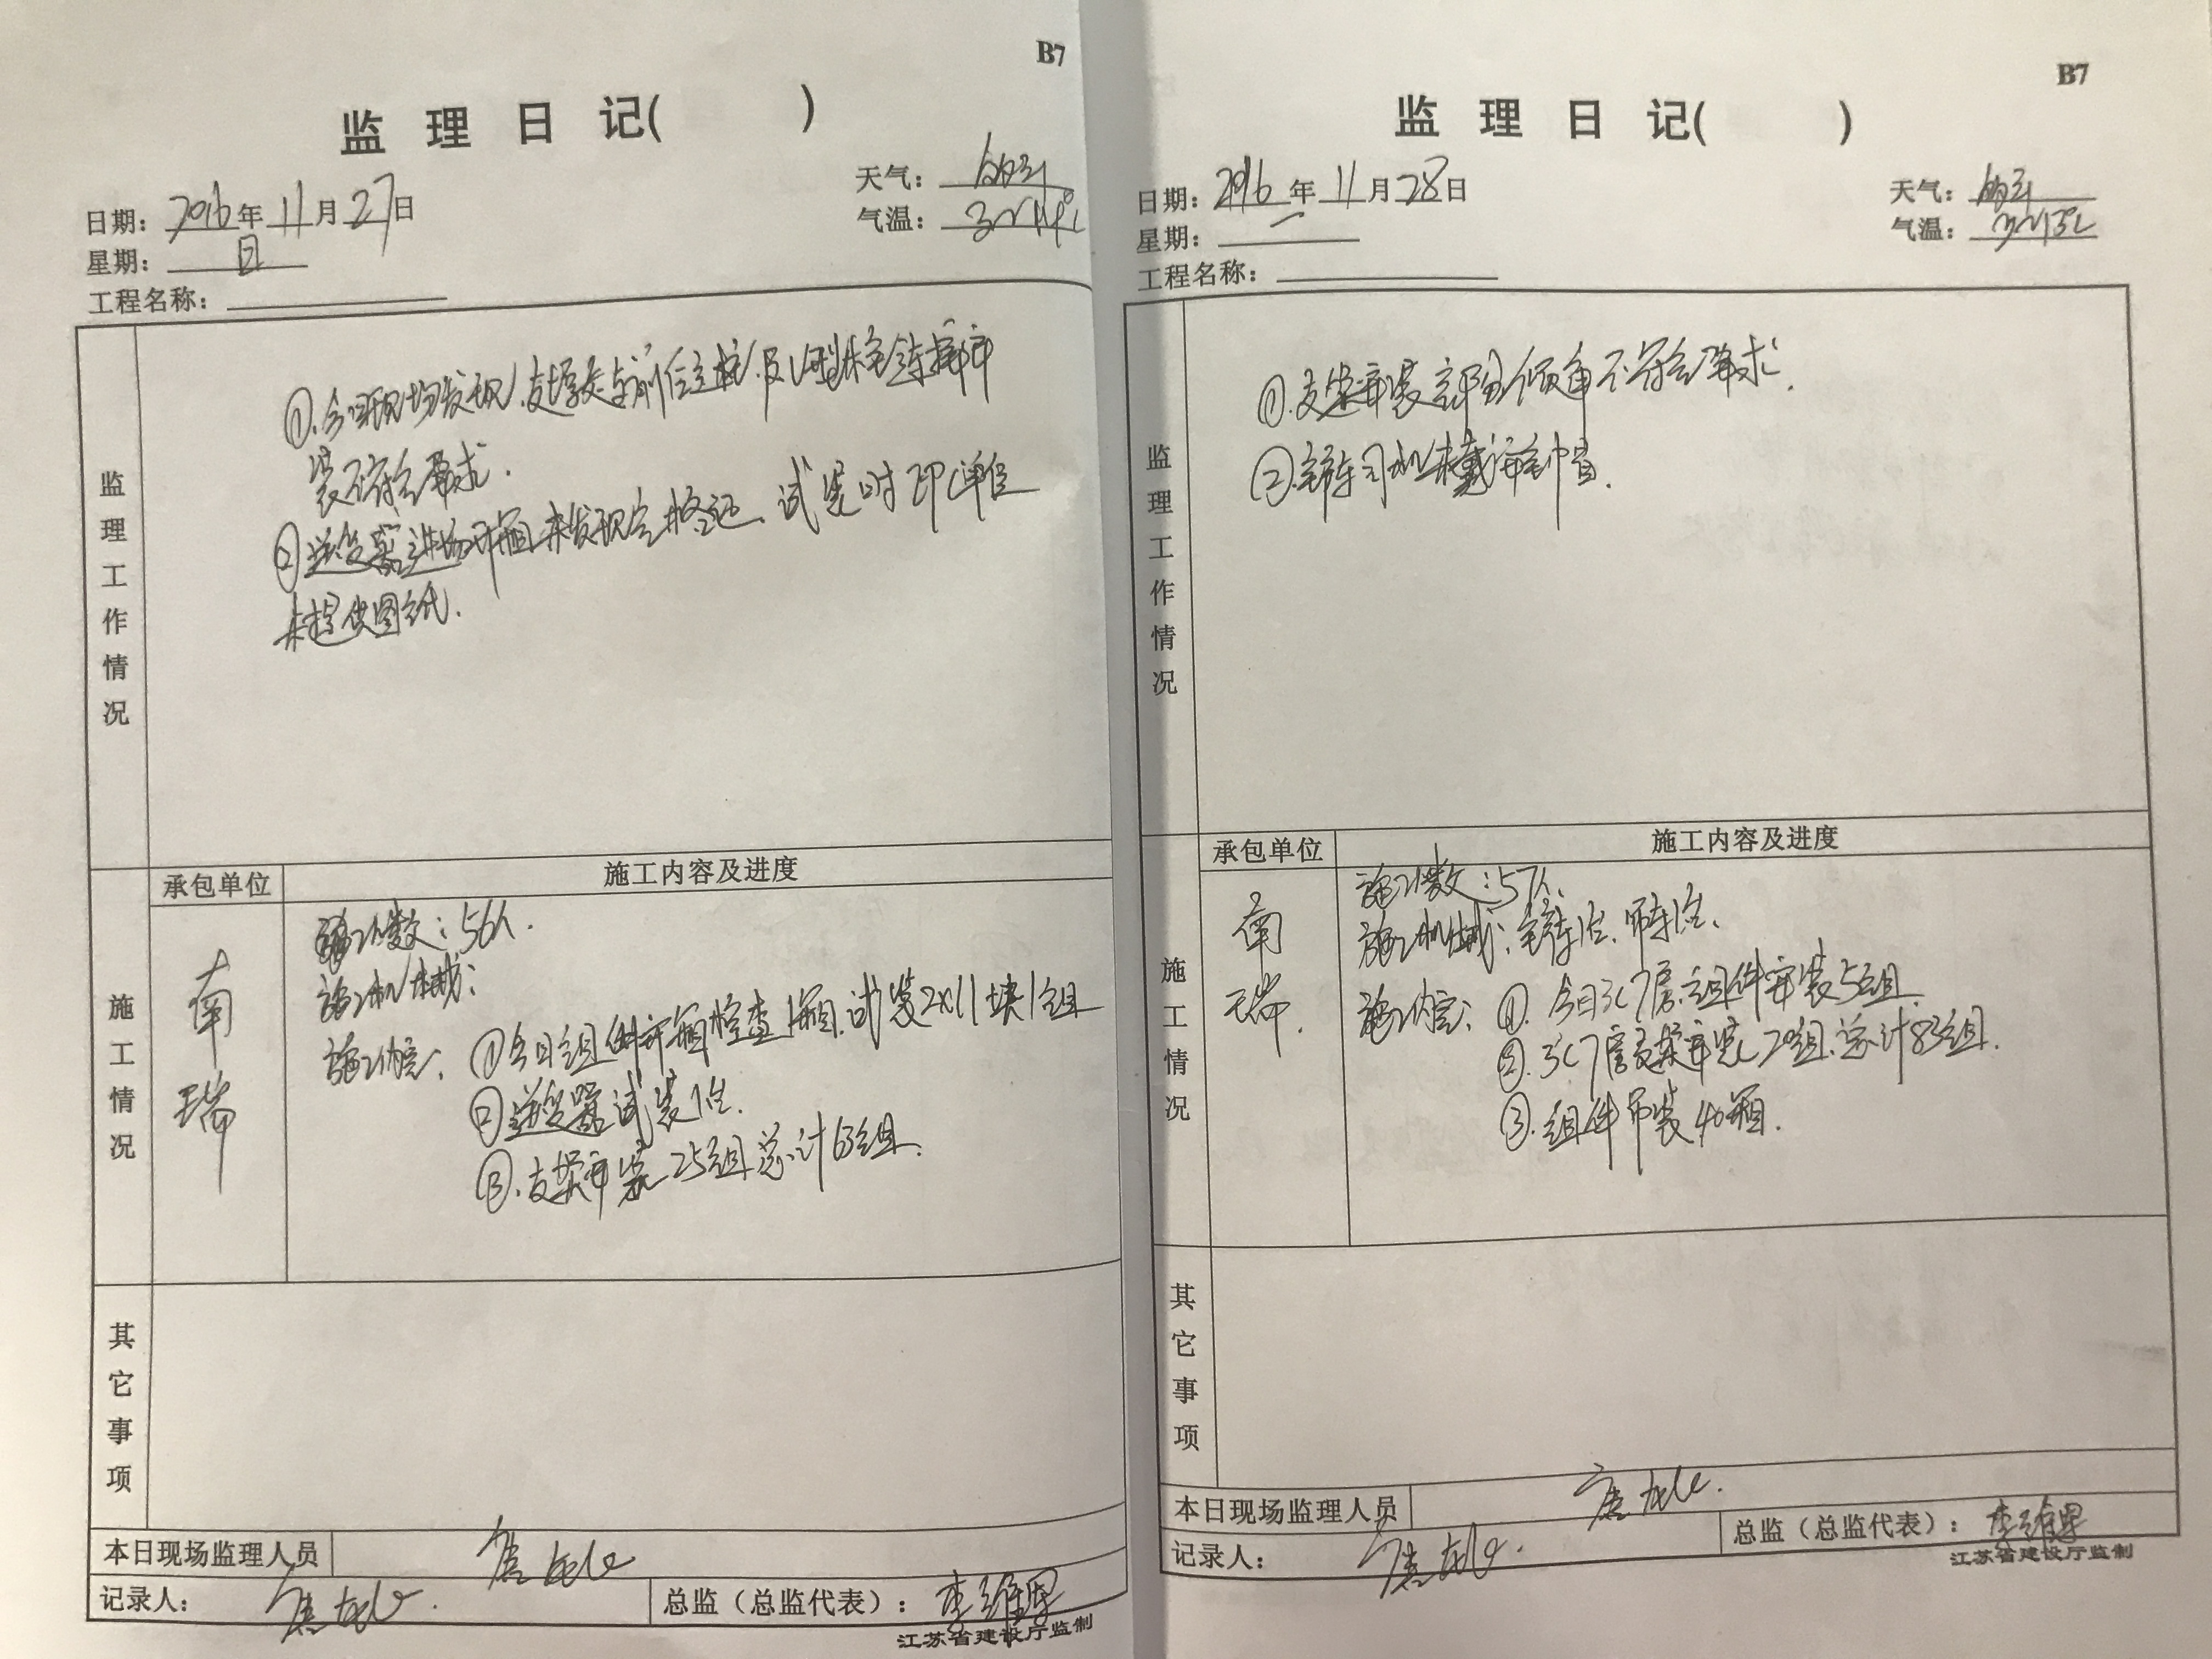 B7
监 理 日 记( )
日期：2016年11月27日
天气：
星期：日
气温：3~14℃
工程名称：
监理工作情况
①.今日现场发现，支架处与前后立柱及 连接安
装不符合要求.
②逆变器进场开箱未发现合格证、试装时EPC单位
未提供图纸.
承包单位
施工内容及进度
施工情况
南瑞
施工人数：56人.
施工机械：
施工内容：①今日组件开箱检查1箱.试装2×11块1组
②逆变器试装1台.
③.支架安装25组总计63组.
其它事项
本日现场监理人员
记录人：
总监（总监代表）：李维
江苏省建设厅监制
B7
监 理 日 记( )
日期：2016年11月28日
天气：
星期：一
气温：3~13℃
工程名称：
监理工作情况
①.支架安装部分倾角不符合要求.
②.铲车司机未戴安全帽.
承包单位
施工内容及进度
施工情况
南瑞.
施工人数：57人.
施工机械：铲车1台、吊车1台.
施工内容：①.今日3C7 组件安装5组.
②.3C7 支架安装20组.总计83组.
③.组件吊装40箱.
其它事项
本日现场监理人员
记录人：
总监（总监代表）：李维
江苏省建设厅监制